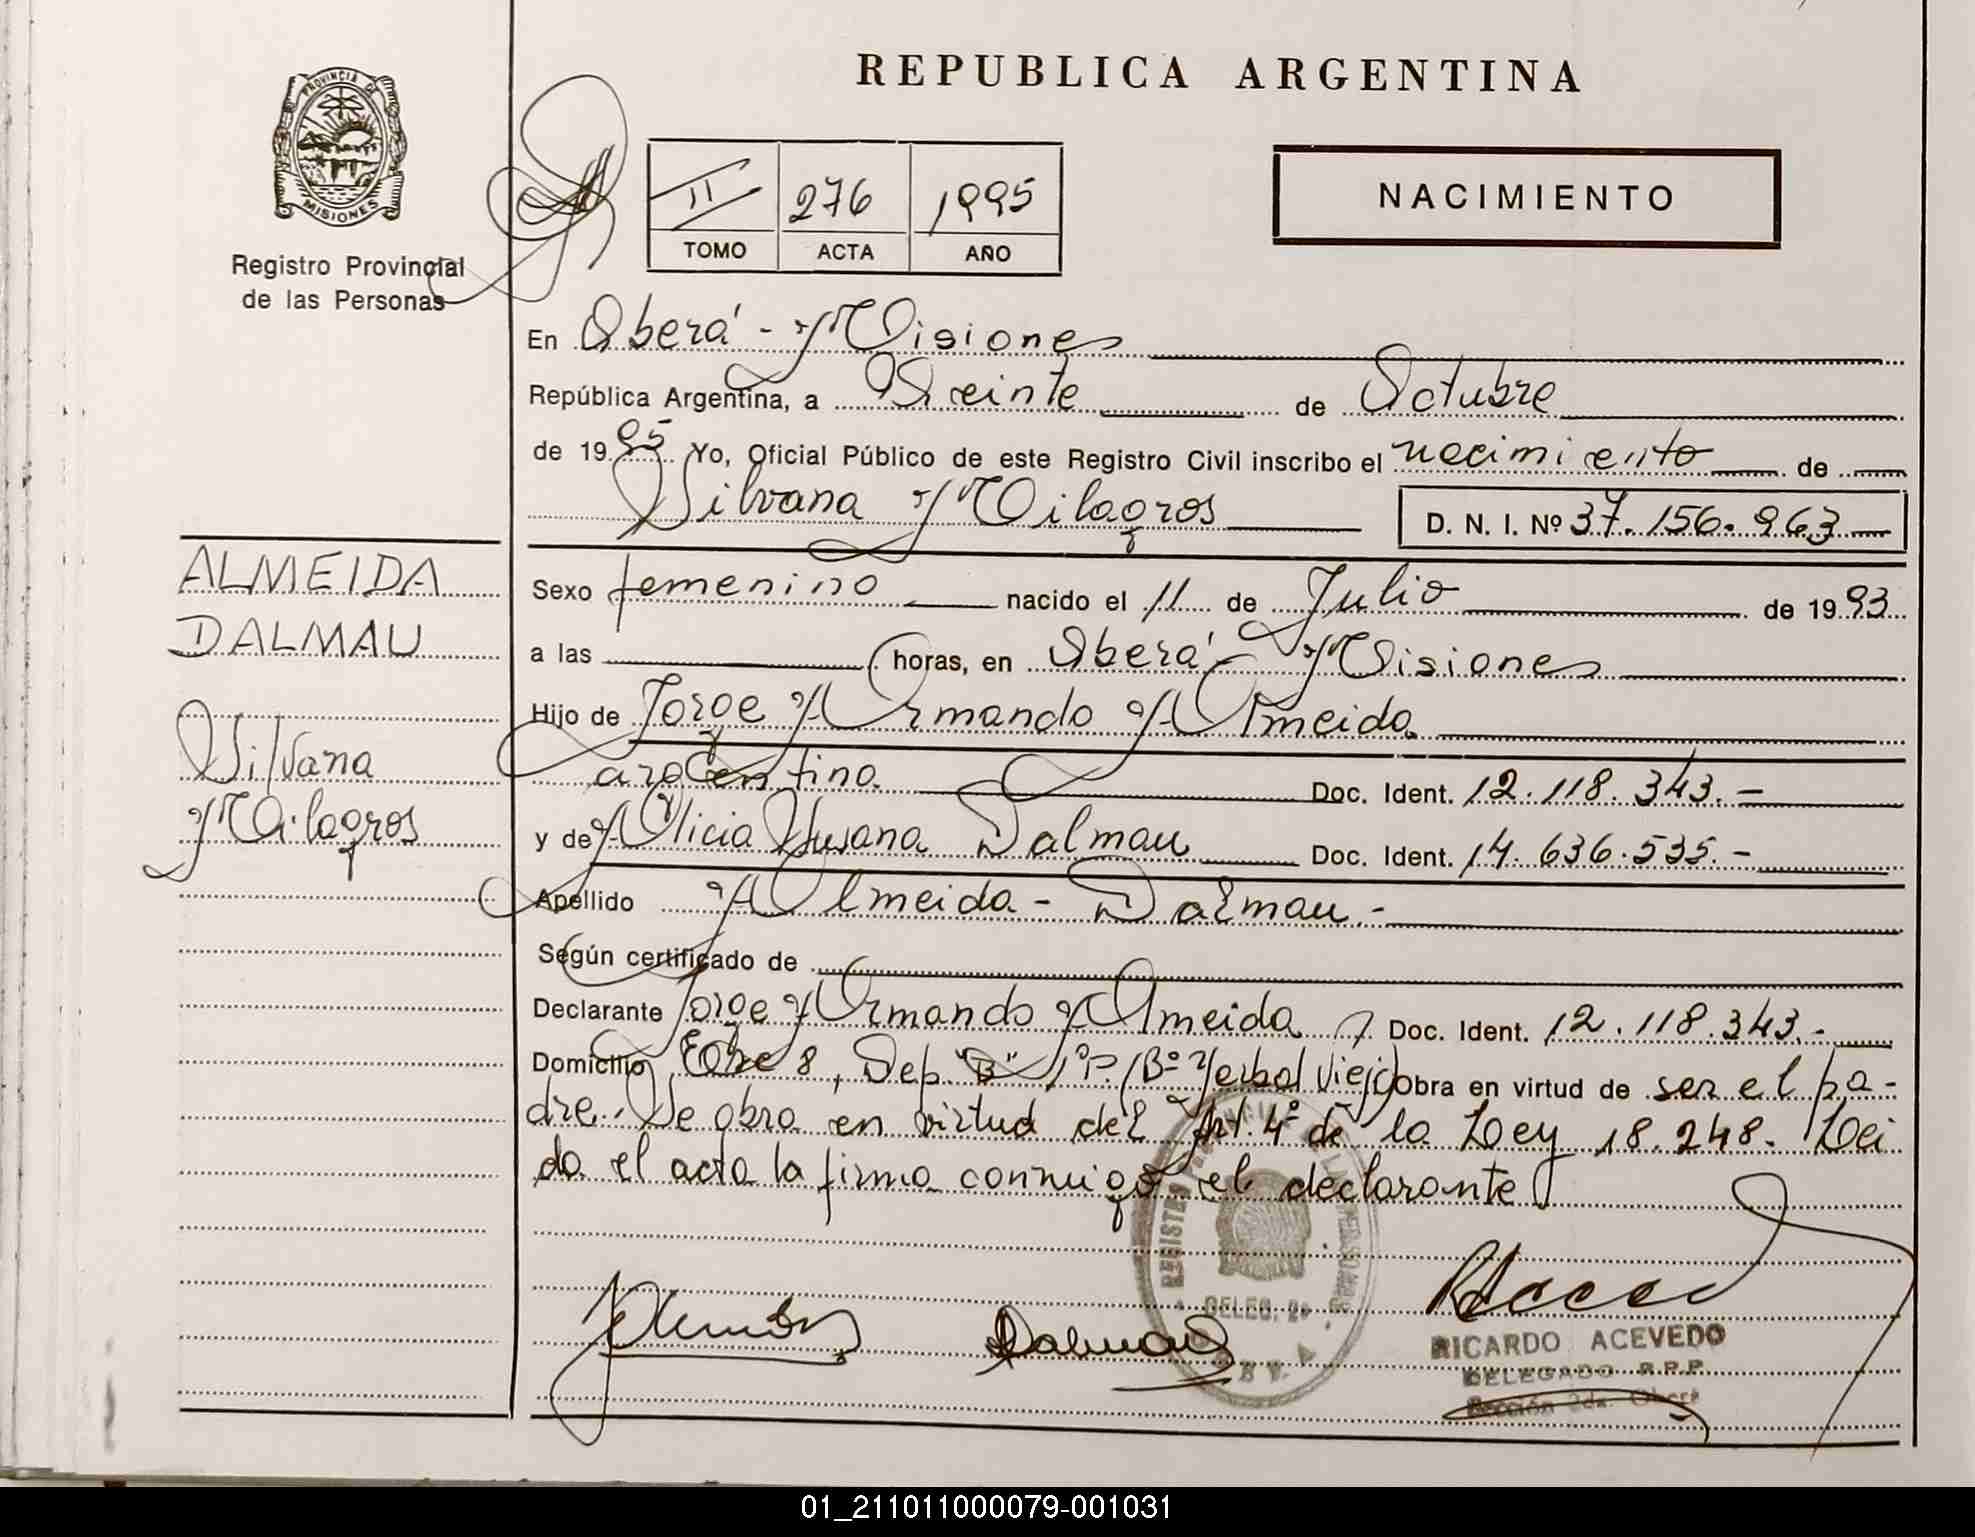 REPUBLICA ARGENTINA
PROVINCIA DE
MISIONES
Registro Provincial
de las Personas
II 276 1995
TOMO ACTA AÑO
NACIMIENTO
En Oberá - Misiones
República Argentina, a Veinte de Octubre
de 1995 Yo, Oficial Público de este Registro Civil inscribo el nacimiento de
Silvana Milagros D. N. I. Nº 37.156.963
ALMEIDA
DALMAU
Silvana
Milagros
Sexo femenino nacido el 11 de Julio de 1993
a las horas, en Oberá - Misiones
Hijo de Jorge Armando Almeida
argentino Doc. Ident. 12.118.343.-
y de Alicia Susana Dalmau Doc. Ident. 14.636.535.-
Apellido Almeida - Dalmau -
Según certificado de
Declarante Jorge Armando Almeida Doc. Ident. 12.118.343.-
Domicilio 8, Dep. "B" 1º P. Bº Yerbal Viejo obra en virtud de ser el pa-
dre. Se obra en virtud del Art. 4º de la Ley 18.248. Lei
da el acta la firma conmigo el declarante
Dalmau
DELEG. 2a
RICARDO ACEVEDO
DELEGADO R.P.P.
Sección 2da. Oberá
01_211011000079-001031